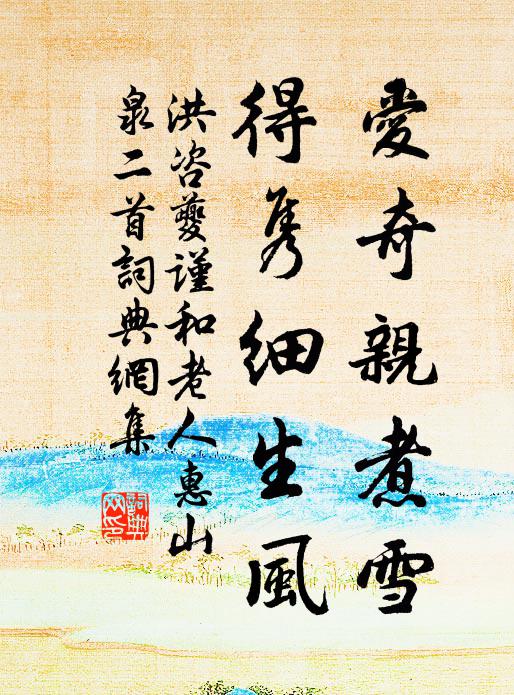 愛奇親煮雪
得雋細生風
洪咨夔謹和老人惠山
泉二首詞典網集